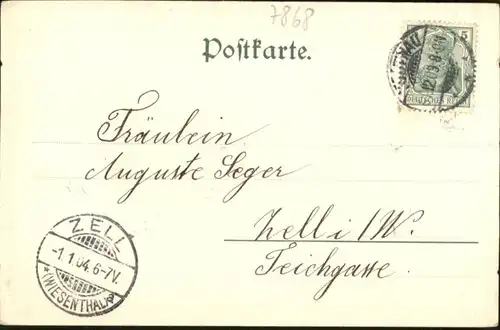 7868
Postkarte.
5
Fräulein
Auguste Seger
Zell i/W.
Teichgasse.
ZELL
-1.1.04.6-7V.
*(WIESENTHAL)*